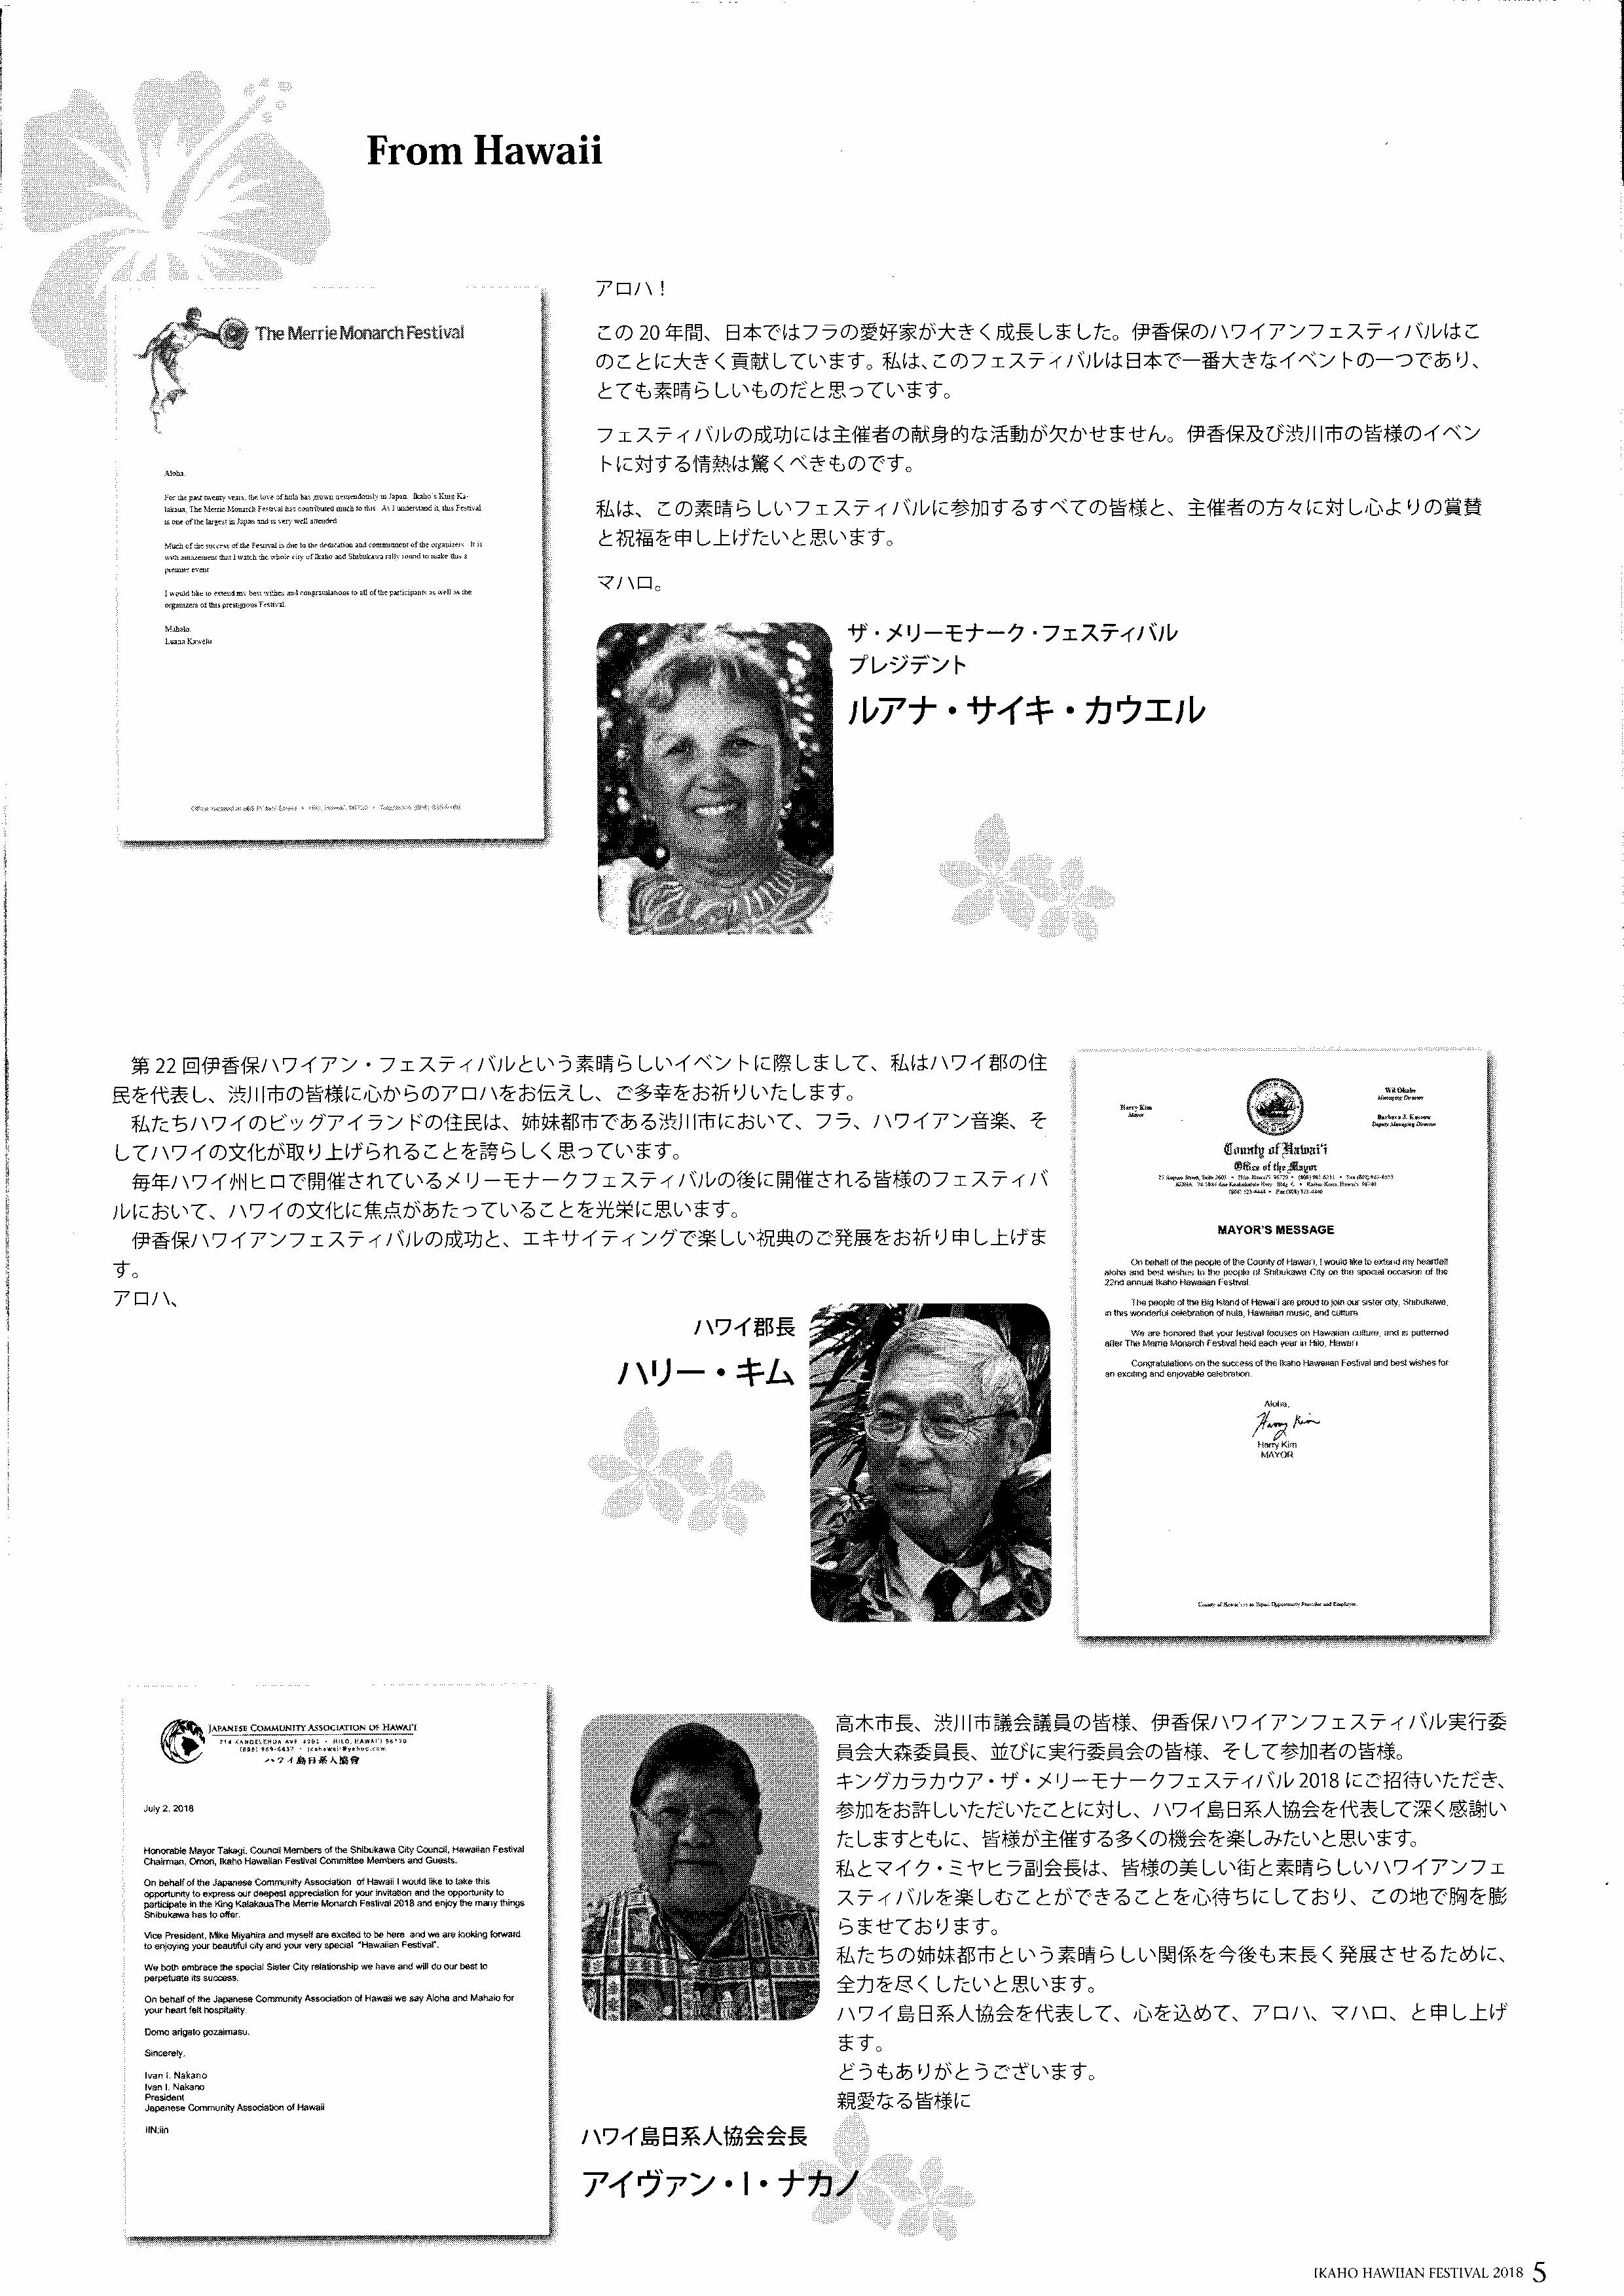 From Hawaii
The Merrie Monarch Festival
Aloha,
For the past twenty years, the love of hula has grown tremendously in Japan. Ikaho's King Ka-
lakaua, The Merrie Monarch Festival has contributed much to this. As I understand it, this Festival
is one of the largest in Japan and is very well attended.
Much of the success of the Festival is due to the dedication and commitment of the organizers. It is
with amazement that I watch the whole city of Ikaho and Shibukawa rally round to make this a
premier event.
I would like to extend my best wishes and congratulations to all of the participants as well as the
organizers of this prestigious Festival.
Mahalo.
Luana Kawelu
アロハ！
この 20 年間、日本ではフラの愛好家が大きく成長しました。伊香保のハワイアンフェスティバルはこ
のことに大きく貢献しています。私は、このフェスティバルは日本で一番大きなイベントの一つであり、
とても素晴らしいものだと思っています。
フェスティバルの成功には主催者の献身的な活動が欠かせません。伊香保及び渋川市の皆様のイベン
トに対する情熱は驚くべきものです。
私は、この素晴らしいフェスティバルに参加するすべての皆様と、主催者の方々に対し心よりの賞賛
と祝福を申し上げたいと思います。
マハロ。
ザ・メリーモナーク・フェスティバル
プレジデント
ルアナ・サイキ・カウエル
第 22 回伊香保ハワイアン・フェスティバルという素晴らしいイベントに際しまして、私はハワイ郡の住
民を代表し、渋川市の皆様に心からのアロハをお伝えし、ご多幸をお祈りいたします。
私たちハワイのビッグアイランドの住民は、姉妹都市である渋川市において、フラ、ハワイアン音楽、そ
してハワイの文化が取り上げられることを誇らしく思っています。
毎年ハワイ州ヒロで開催されているメリーモナークフェスティバルの後に開催される皆様のフェスティバ
ルにおいて、ハワイの文化に焦点があたっていることを光栄に思います。
伊香保ハワイアンフェスティバルの成功と、エキサイティングで楽しい祝典のご発展をお祈り申し上げま
す。
アロハ、
ハワイ郡長
ハリー・キム
Harry Kim
Mayor
Wil Okabe
Managing Director
Barbara J. Kossow
Deputy Managing Director
County of Hawai'i
Office of the Mayor
MAYOR'S MESSAGE
On behalf of the people of the County of Hawai'i, I would like to extend my heartfelt
aloha and best wishes to the people of Shibukawa City on the special occasion of the
22nd annual Ikaho Hawaiian Festival.
The people of the Big Island of Hawai'i are proud to join our sister city, Shibukawa,
in this wonderful celebration of hula, Hawaiian music, and culture.
We are honored that your festival focuses on Hawaiian culture, and is patterned
after The Merrie Monarch Festival held each year in Hilo, Hawai'i.
Congratulations on the success of the Ikaho Hawaiian Festival and best wishes for
an exciting and enjoyable celebration.
Aloha,
Harry Kim
Harry Kim
MAYOR
County of Hawai'i is an Equal Opportunity Provider and Employer.
JAPANESE COMMUNITY ASSOCIATION OF HAWAI'I
ハワイ島日系人協會
July 2, 2018
Honorable Mayor Takagi, Council Members of the Shibukawa City Council, Hawaiian Festival
Chairman, Omori, Ikaho Hawaiian Festival Committee Members and Guests.
On behalf of the Japanese Community Association of Hawaii I would like to take this
opportunity to express our deepest appreciation for your invitation and the opportunity to
participate in the King KalakauaThe Merrie Monarch Festival 2018 and enjoy the many things
Shibukawa has to offer.
Vice President, Mike Miyahira and myself are excited to be here and we are looking forward
to enjoying your beautiful city and your very special "Hawaiian Festival".
We both embrace the special Sister City relationship we have and will do our best to
perpetuate its success.
On behalf of the Japanese Community Association of Hawaii we say Aloha and Mahalo for
your heart felt hospitality.
Domo arigato gozaimasu.
Sincerely,
Ivan I. Nakano
Ivan I. Nakano
President
Japanese Community Association of Hawaii
IIN:iin
高木市長、渋川市議会議員の皆様、伊香保ハワイアンフェスティバル実行委
員会大森委員長、並びに実行委員会の皆様、そして参加者の皆様。
キングカラカウア・ザ・メリーモナークフェスティバル 2018 にご招待いただき、
参加をお許しいただいたことに対し、ハワイ島日系人協会を代表して深く感謝い
たしますともに、皆様が主催する多くの機会を楽しみたいと思います。
私とマイク・ミヤヒラ副会長は、皆様の美しい街と素晴らしいハワイアンフェ
スティバルを楽しむことができることを心待ちにしており、この地で胸を膨
らませております。
私たちの姉妹都市という素晴らしい関係を今後も末長く発展させるために、
全力を尽くしたいと思います。
ハワイ島日系人協会を代表して、心を込めて、アロハ、マハロ、と申し上げ
ます。
どうもありがとうございます。
親愛なる皆様に
ハワイ島日系人協会会長
アイヴァン・I・ナカノ
IKAHO HAWIIAN FESTIVAL 2018 5